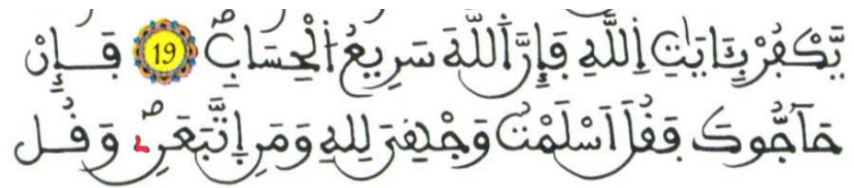 يَّكْفُرْ بِـَٔايَٰتِ اِ۬للَّهِ فَإِنَّ اَ۬للَّهَ سَرِيعُ اُ۬لْحِسَابِۖ 19 فَإِنْ
حَآجُّوكَ فَقُلَ اَسْلَمْتُ وَجْهِيَ لِلهِ وَمَنِ اِ۪تَّبَعَنِۦۖ وَقُل